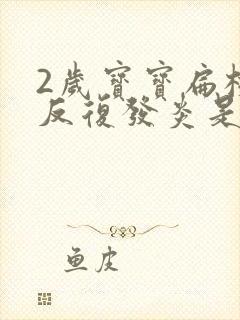 2歲寶寶扁桃
反復發炎是
魚皮